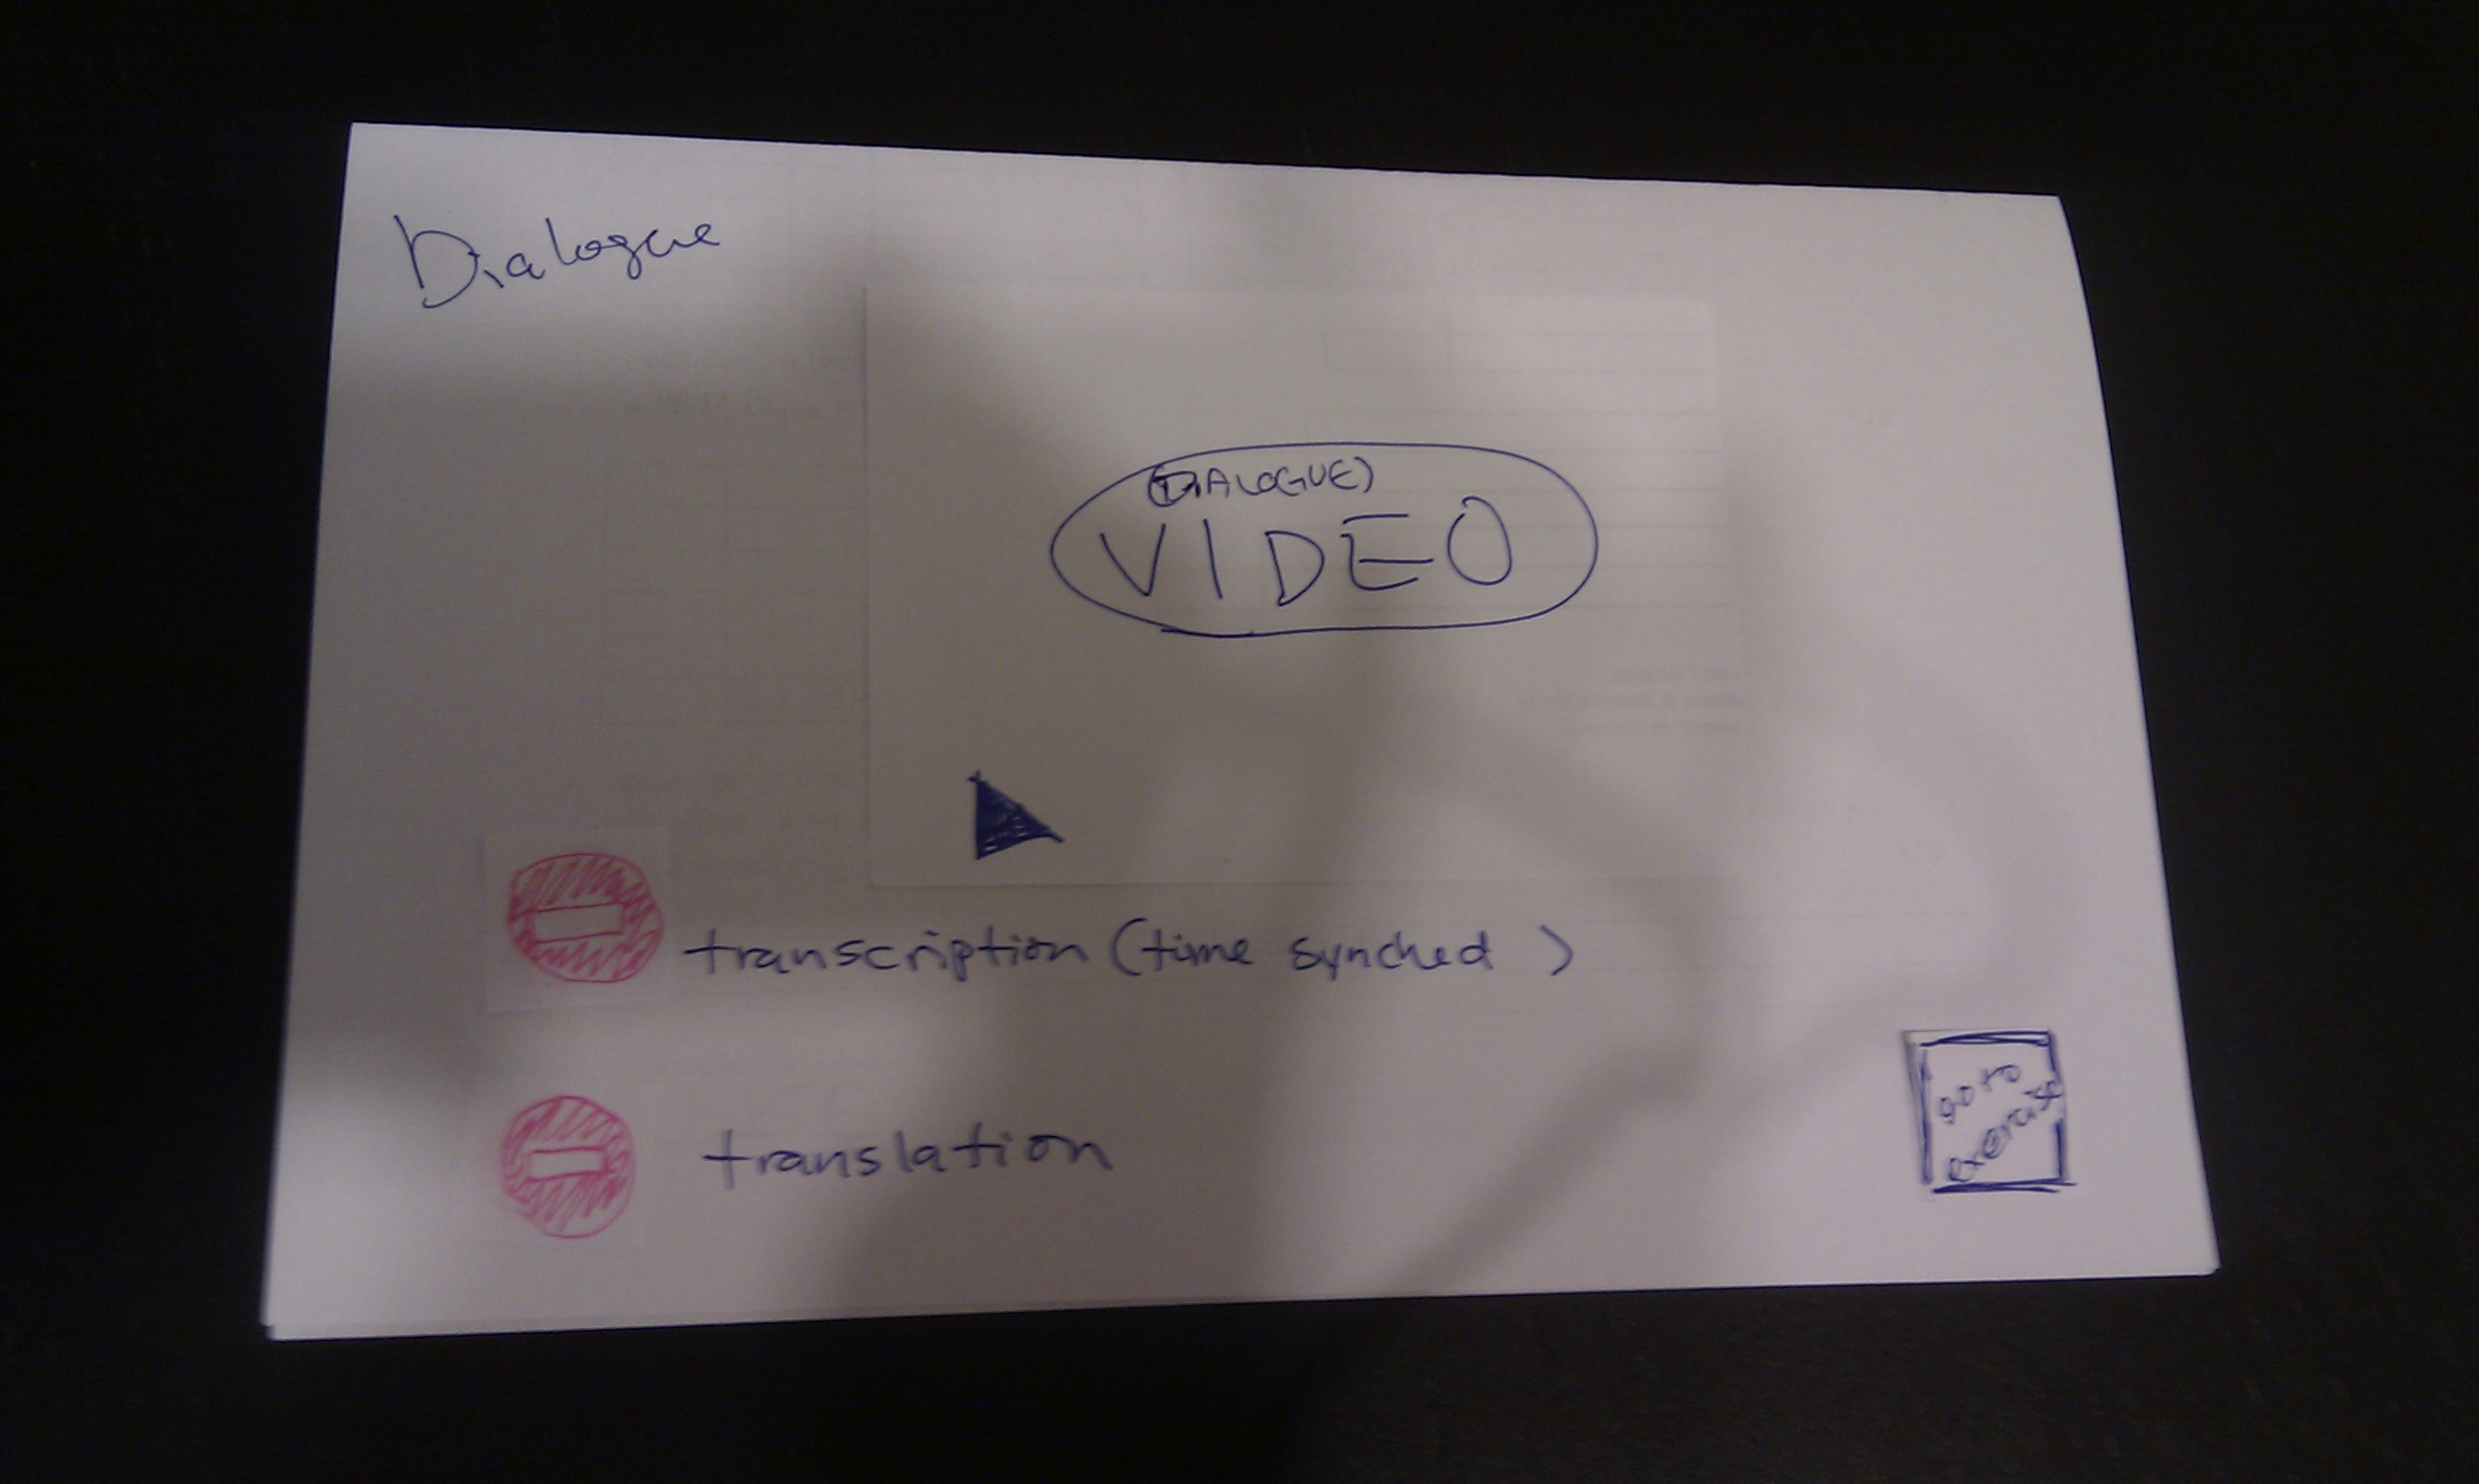 Dialogue
(DIALOGUE)
VIDEO
transcription (time synched )
translation
go to
exercise